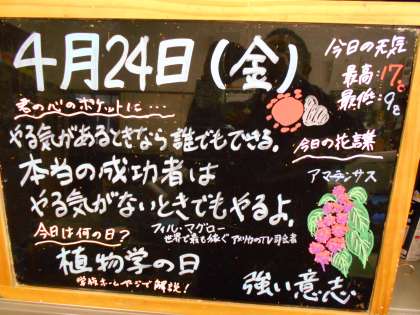 4月24日(金)
今日の天気
最高:17℃
最低:9℃
君の心のポケットに…
やる気があるときなら誰でもできる。
本当の成功者は
やる気がないときでもやるよ。
フィル・マグロー
世界で最も稼ぐ アメリカのTV司会者
今日は何の日?
植物学の日
学院ホームページで解説!
今日の花言葉
アマランサス
強い意志